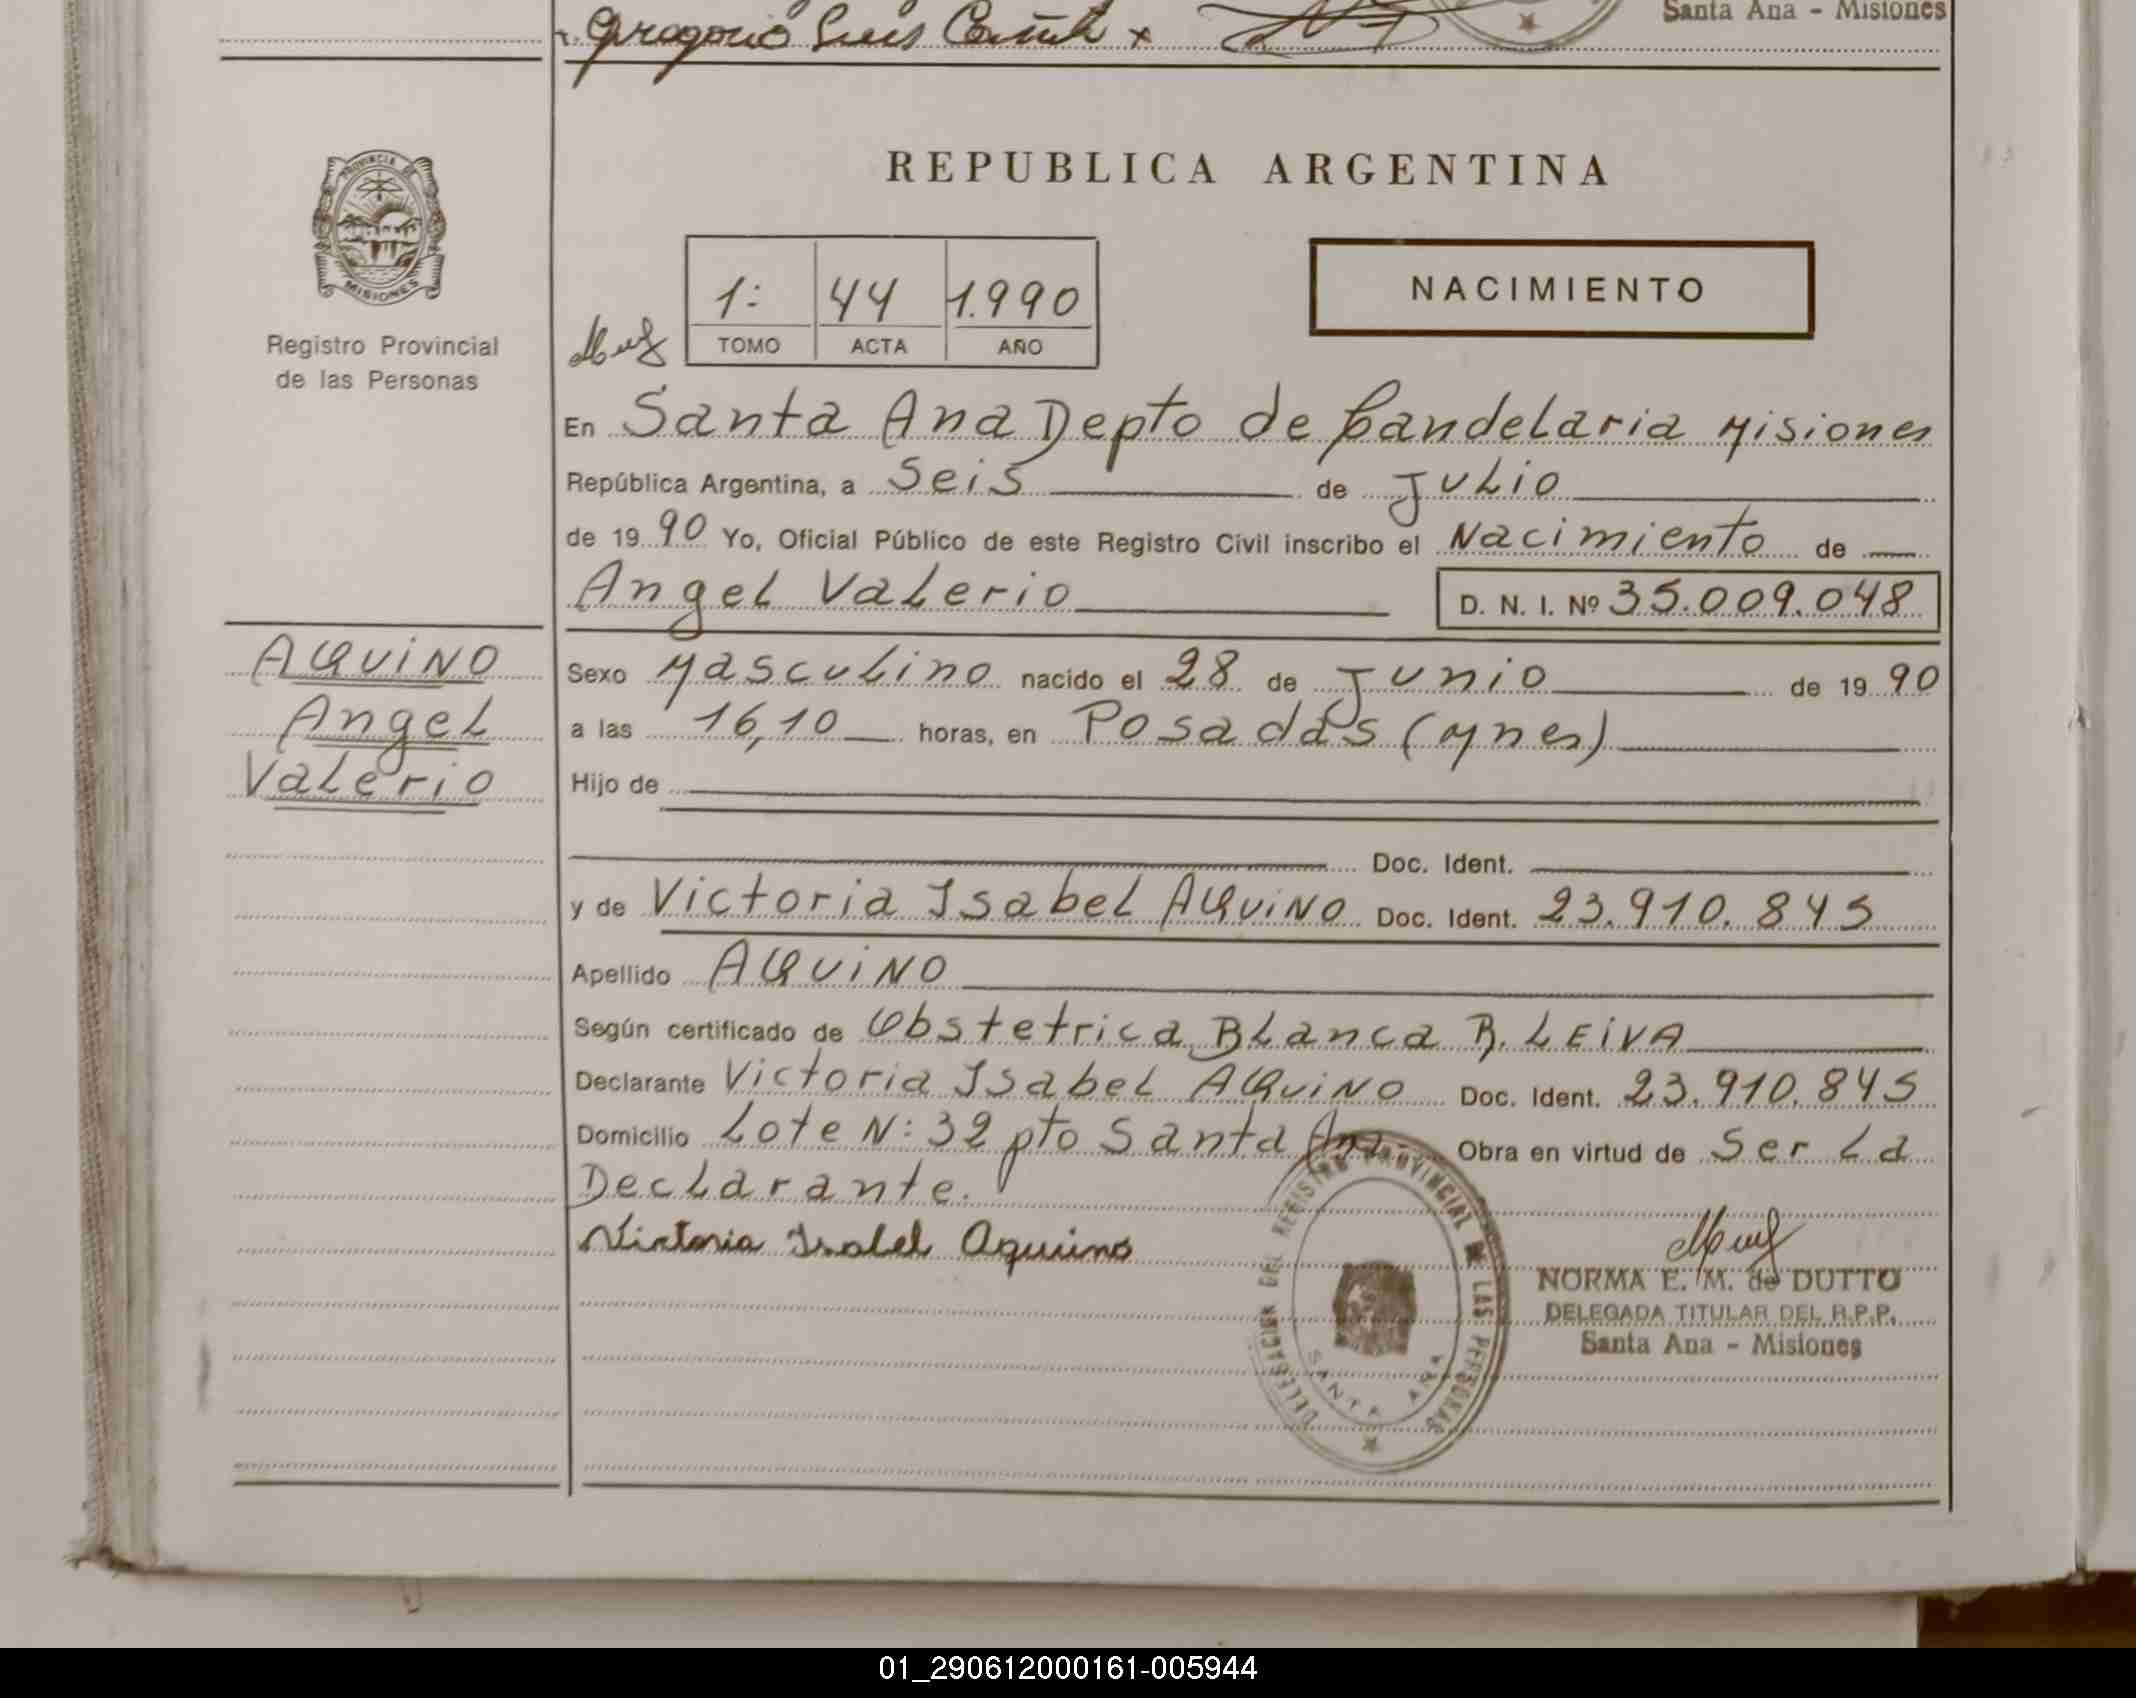 Gregorio Luis
Santa Ana - Misiones
PROVINCIA DE
MISIONES
Registro Provincial
de las Personas
REPUBLICA ARGENTINA
1: 44 1.990
TOMO ACTA AÑO
NACIMIENTO
En Santa Ana Depto de Candelaria Misiones
República Argentina, a Seis de Julio
de 19 90 Yo, Oficial Público de este Registro Civil inscribo el Nacimiento de
Angel Valerio D. N. I. Nº 35.009.048
AQUINO
Angel
Valerio
Sexo Masculino nacido el 28 de Junio de 19 90
a las 16,10 horas, en Posadas (Mnes)
Hijo de
Doc. Ident.
y de Victoria Isabel AQUINO Doc. Ident. 23.910.845
Apellido AQUINO
Según certificado de Obstetrica Blanca R. LEIVA
Declarante Victoria Isabel AQUINO Doc. Ident. 23.910.845
Domicilio Lote N: 32 pto Santa Ana Obra en virtud de Ser La
Declarante.
Victoria Isabel Aquino
DELEGACION DEL REGISTRO PROVINCIAL DE LAS PERSONAS
SANTA ANA
NORMA E. M. de DUTTO
DELEGADA TITULAR DEL R.P.P.
Santa Ana - Misiones
01_290612000161-005944